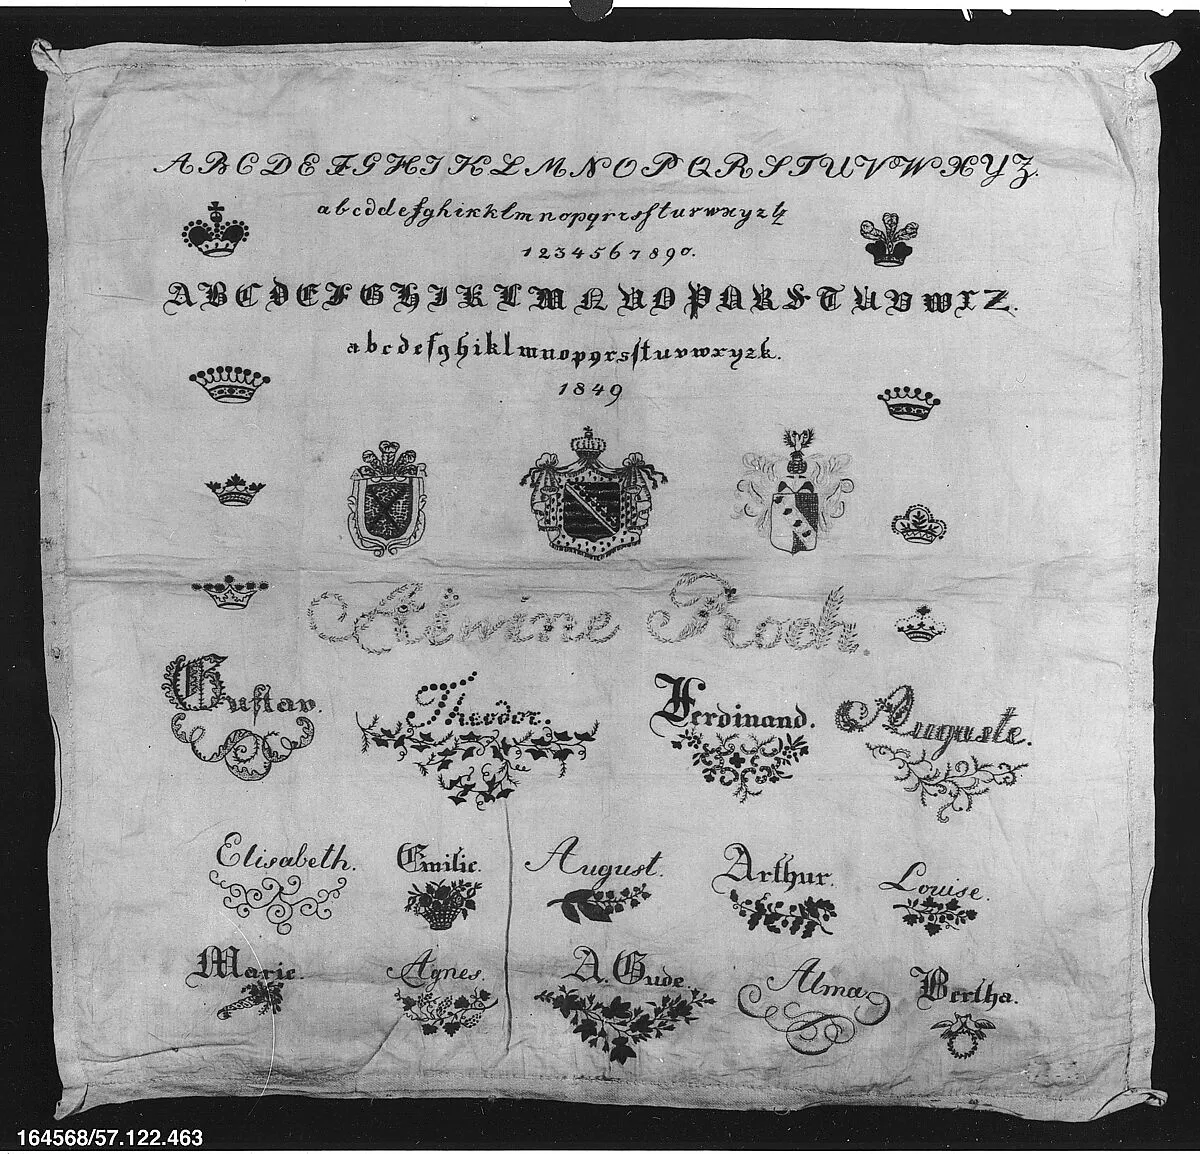 A B C D E F G H I K L M N O P Q R S T U V W X Y Z.
a b c d d e f g h i k k l m n o p q r r s ſ t u v w x y z tz
1 2 3 4 5 6 7 8 9 0.
A B C D E F G H I K L M N O P Q R S T U V W X Z.
a b c d e f g h i k l m n o p q r s ſ t u v w x y z k.
1849
Alwine Koch.
Gustav.
Theodor.
Ferdinand.
Auguste.
Elisabeth.
Emilie.
August.
Arthur.
Louise.
Marie.
Agnes.
A. Gude
Alma.
Bertha.
164568/57.122.463